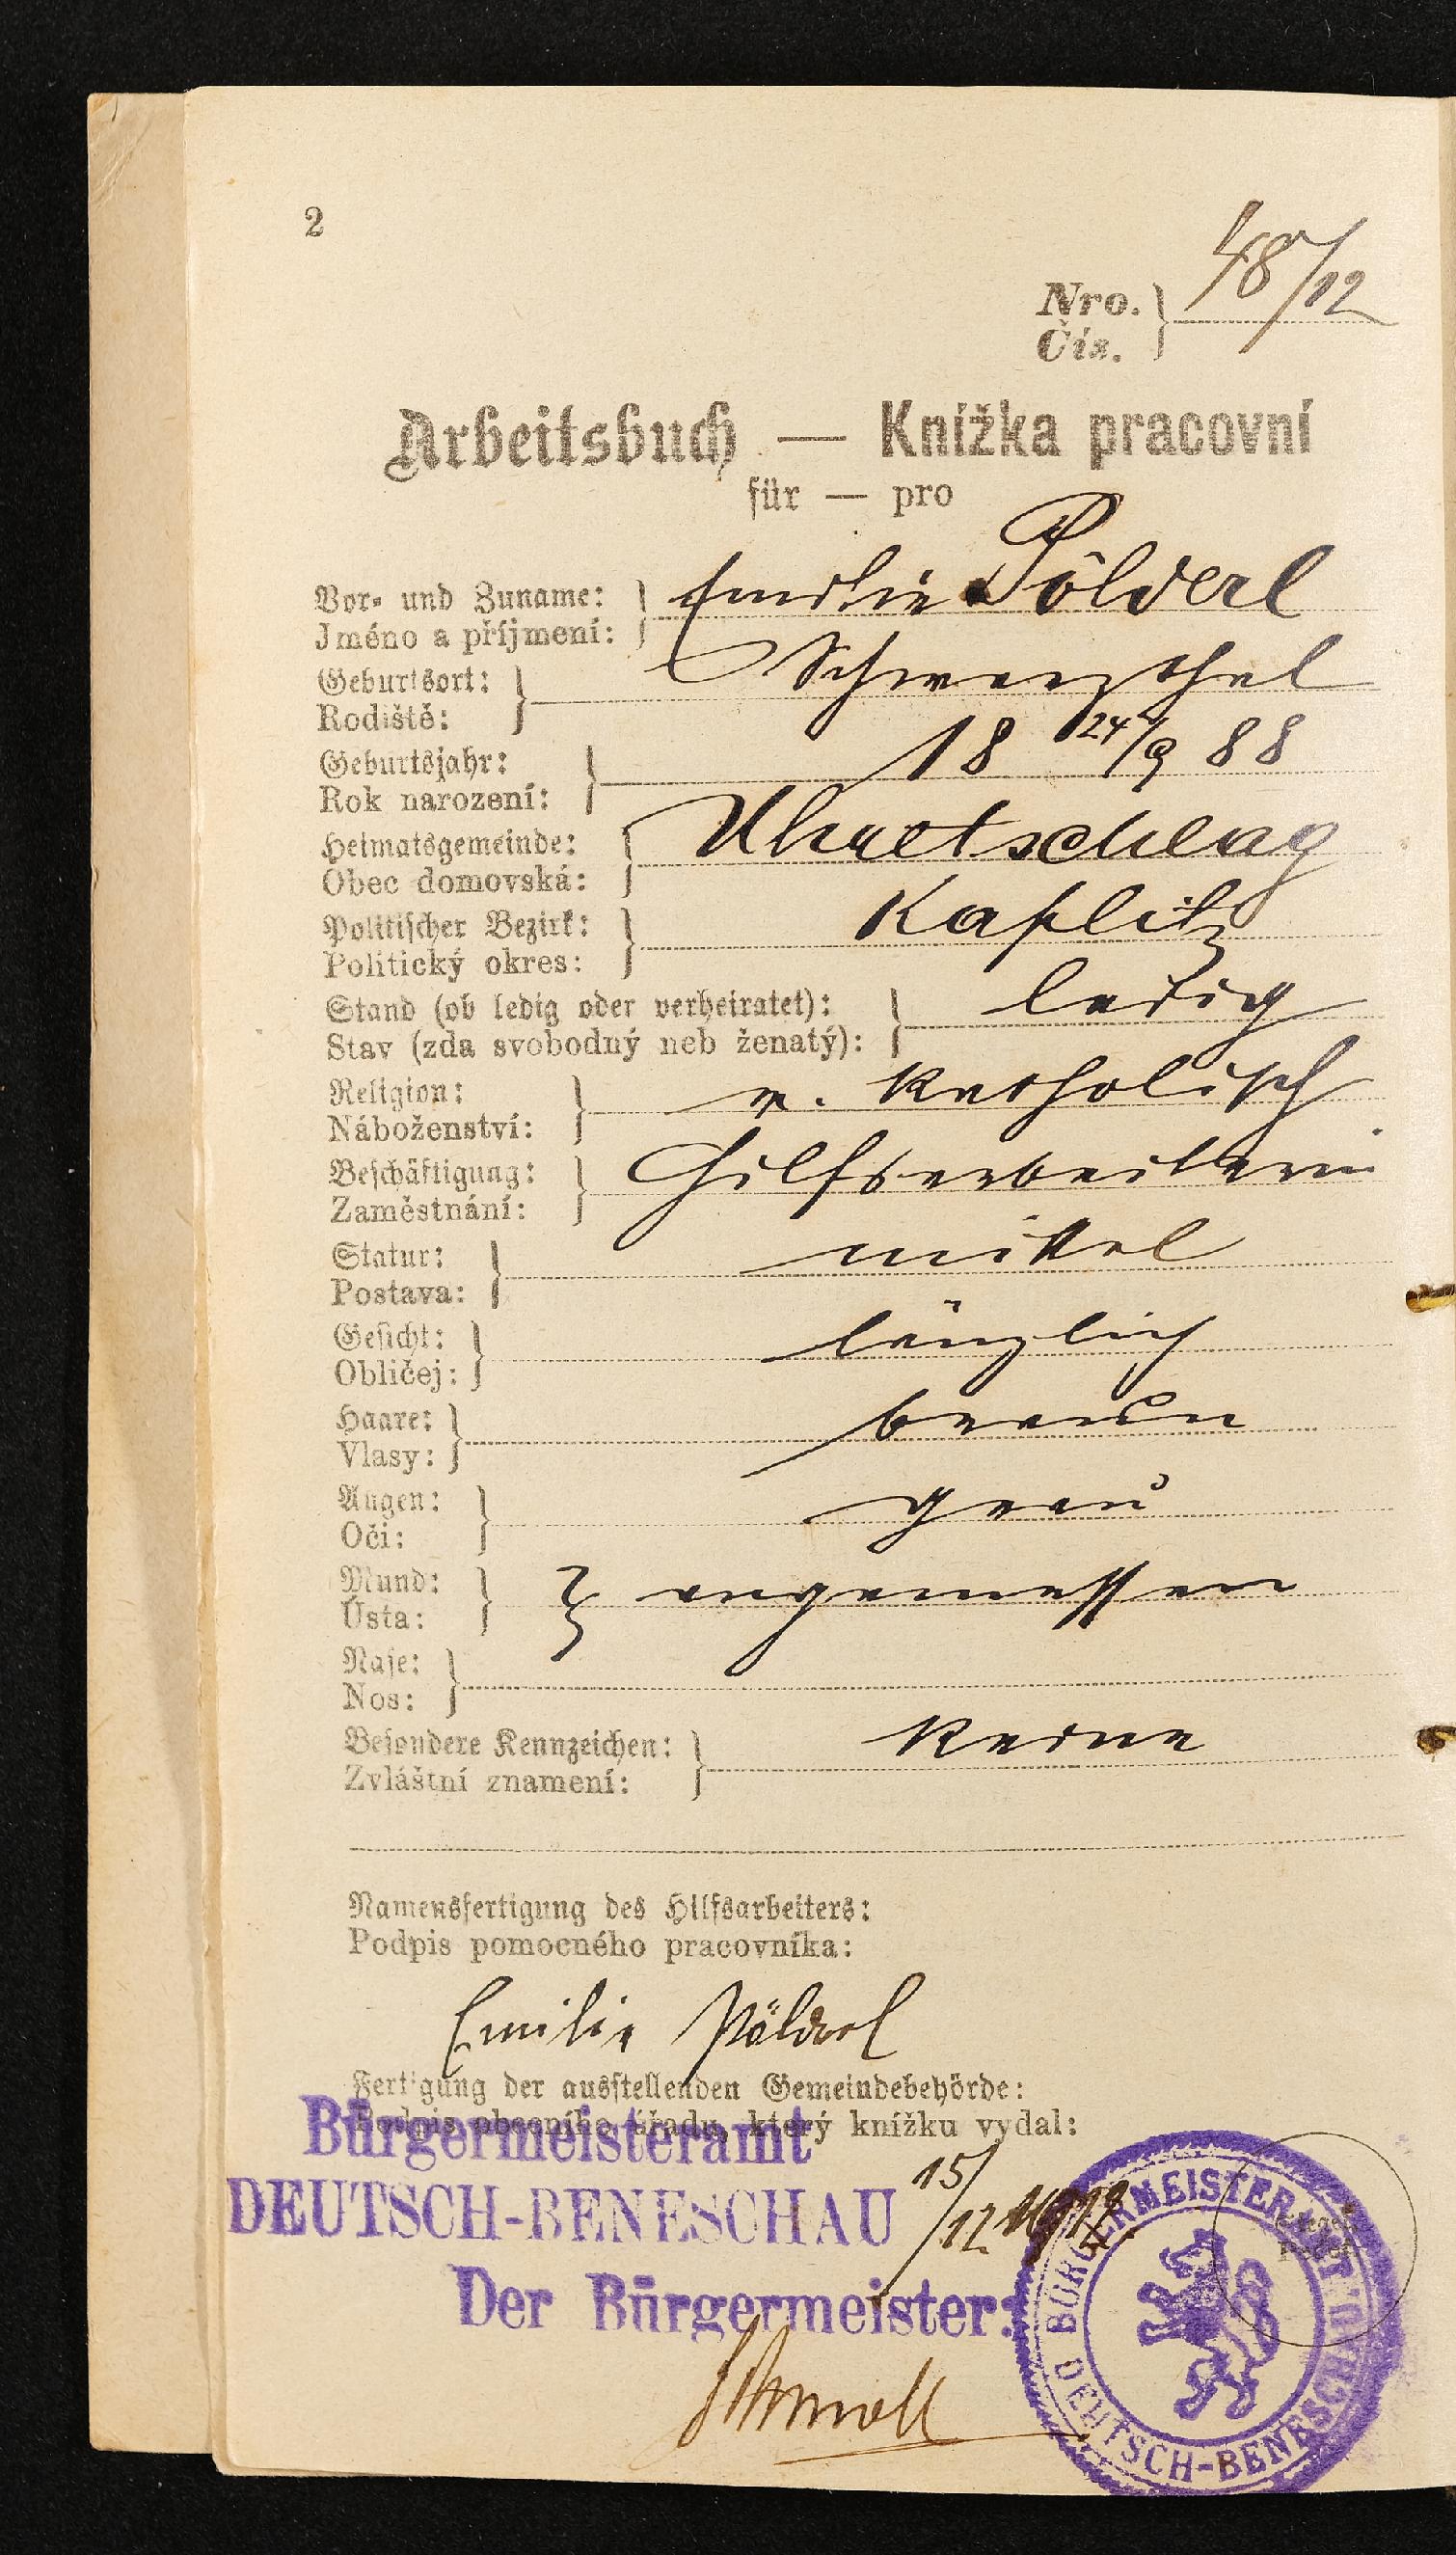 2
Nro. 48/12
Čís.
Arbeitsbuch — Knížka pracovní
für — pro
Vor- und Zuname: Emilie Pölderl
Jméno a příjmení:
Geburtsort: Schwarzthal
Rodiště:
Geburtsjahr: 18 24/9 88
Rok narození:
Heimatsgemeinde: Uhretschlag
Obec domovská:
Politischer Bezirk: Kaplitz
Politický okres:
Stand (ob ledig oder verheiratet): ledig
Stav (zda svobodný neb ženatý):
Religion: r. katholisch
Náboženství:
Beschäftigung: Hilfsarbeiterin
Zaměstnání:
Statur: mittel
Postava:
Gesicht: länglich
Obličej:
Haare: braun
Vlasy:
Augen: grau
Oči:
Mund: angemessen
Ústa:
Nase:
Nos:
Besondere Kennzeichen: keine
Zvláštní znamení:
Namensfertigung des Hilfsarbeiters:
Podpis pomocného pracovníka:
Emilie Pölderl
Fertigung der ausstellenden Gemeindebehörde:
Podpis obecního úřadu, který knížku vydal:
Bürgermeisteramt
DEUTSCH-BENESCHAU 15/12 1912.
Der Bürgermeister:
BÜRGERMEISTERAMT
DEUTSCH-BENESCHAU